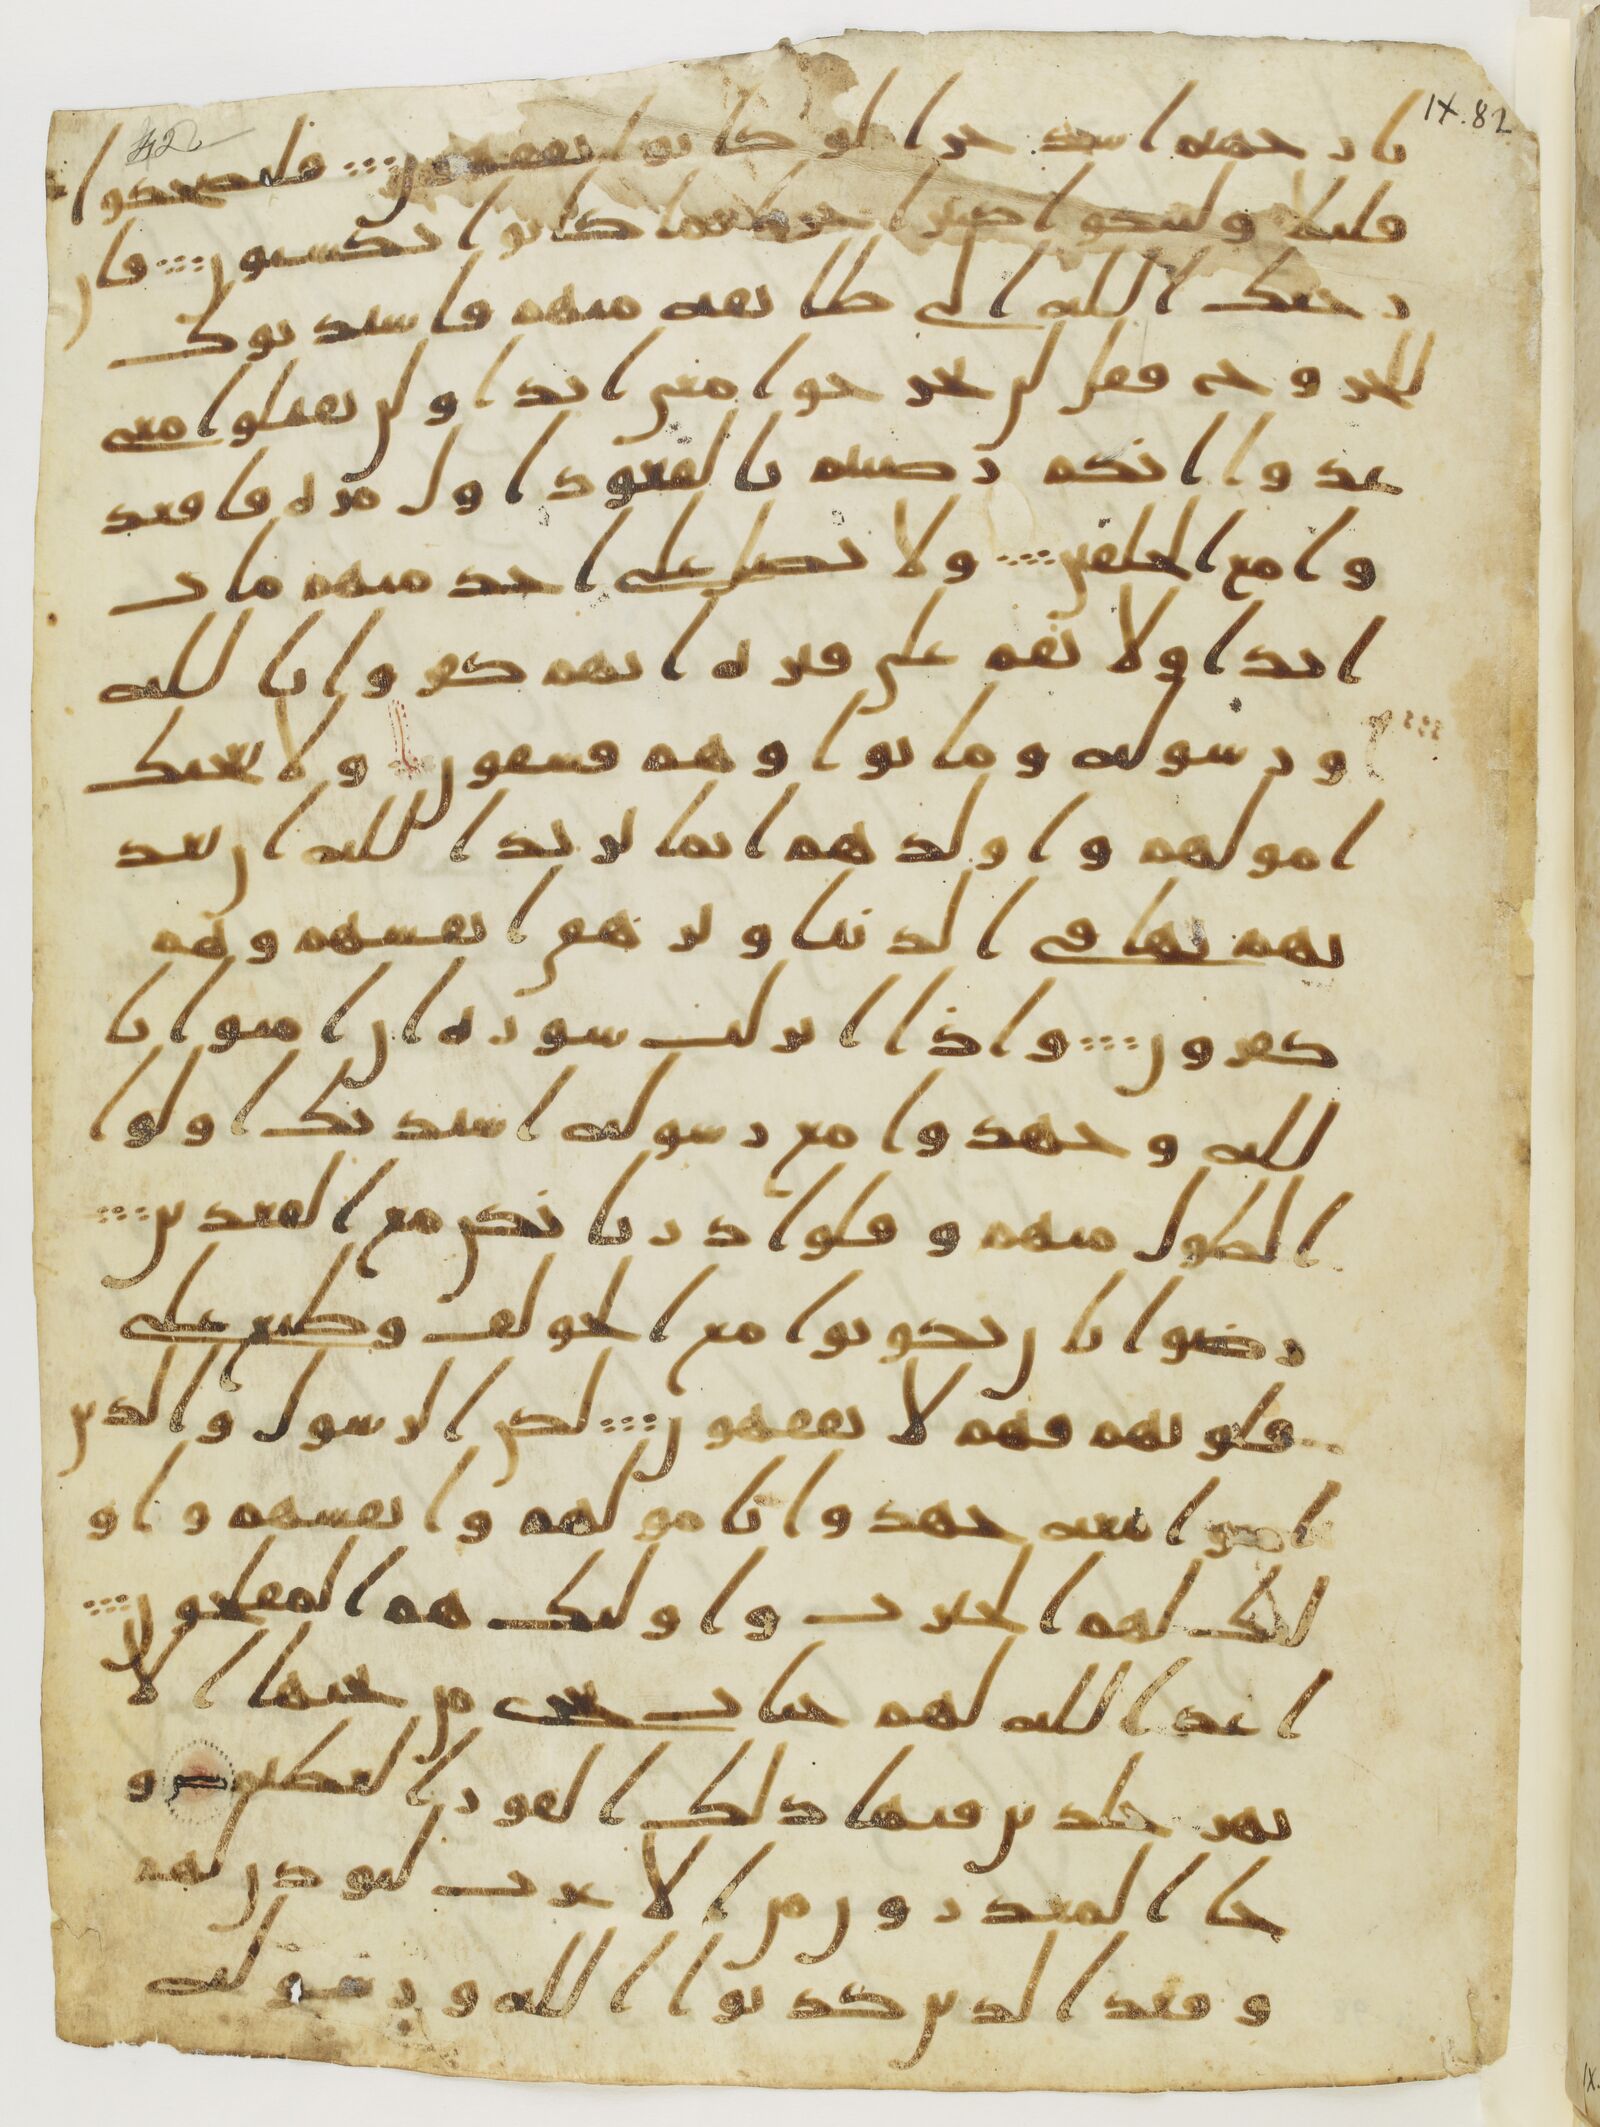 IX.82
نار جهنم اشد حرا لو كانوا يفقهون فليضحكوا
قليلا وليبكوا كثيرا جزا بما كانوا يكسبون فان
رجعك الله الى طائفة منهم فاستذنوك
للخروج فقل لن تخرجوا معي ابدا ولن تقتلوا معي
عدوا انكم رضيتم بالقعود اول مرة فاقعد
وا مع الخلفين ولا تصل على احد منهم مات
ابدا ولا تقم على قبره انهم كفروا بالله
ورسوله وماتوا وهم فسقون ولا تعجبك
امولهم واولدهم انما يريد الله ان يعذ
بهم بها في الدنيا وتزهق انفسهم وهم
كفرون واذا انزلت سورة ان امنوا با
لله وجهدوا مع رسوله استذنك اولوا
الطول منهم وقلوا ذرنا نكن مع القعدين
رضوا بان يكونوا مع الخولف وطبع على
قلوبهم فهم لا يفقهون لكن الرسول والذين
امنوا معه جهدوا بامولهم وانفسهم واو
لئك لهم الخيرت واولئك هم المفلحون
اعد الله لهم جنات تجري من تحتها الا
نهر خلدين فيها ذلك الفوز العظيم و
جا المعذرون من الاعرب ليوذن لهم
وقعد الذين كذبوا الله ورسوله